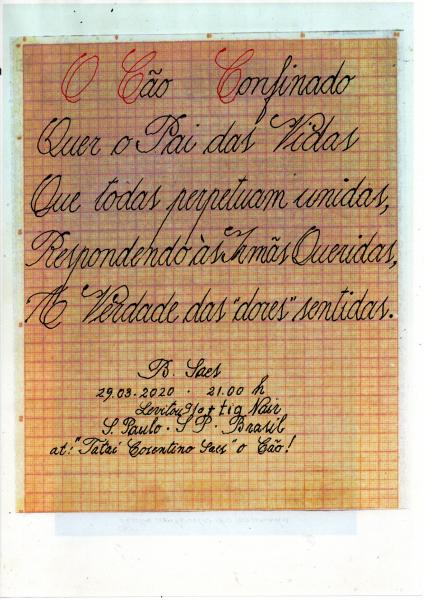 O Cão Confinado
Quer o Pai das Vidas
Que todas perpetuam unidas,
Respondendo às Irmãs Queridas,
A Verdade das "dores" sentidas.
B. Saes
29.03.2020 . 21.00 h
Levitou
S. Paulo . S P . Brasil
at: "Tatai Cosentino Saes" o Cão!